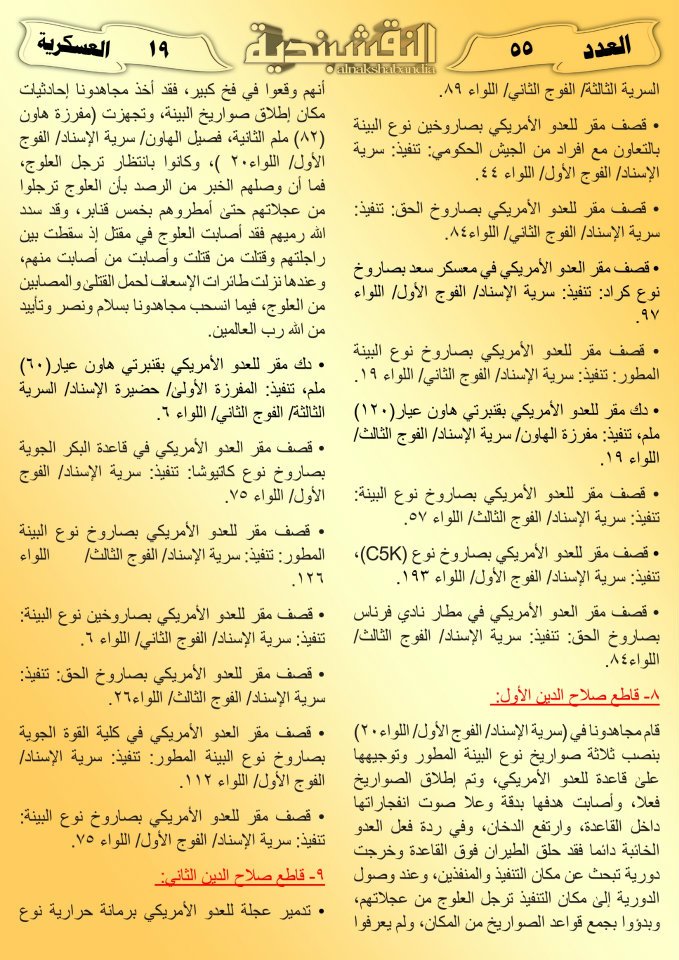 العدد ٥٥
النقشبندية
alnakshabandia
١٩ العسكرية
السرية الثالثة/ الفوج الثاني/ اللواء ٨٩.
• قصف مقر للعدو الأمريكي بصاروخين نوع البينة
بالتعاون مع افراد من الجيش الحكومي: تنفيذ: سرية
الإسناد/ الفوج الأول/ اللواء ٤٤.
• قصف مقر للعدو الأمريكي بصاروخ الحق: تنفيذ:
سرية الإسناد/ الفوج الثاني/ اللواء٨٤.
• قصف مقر العدو الأمريكي في معسكر سعد بصاروخ
نوع كراد: تنفيذ: سرية الإسناد/ الفوج الأول/ اللواء
٩٧.
• قصف مقر للعدو الأمريكي بصاروخ نوع البينة
المطور: تنفيذ: سرية الإسناد/ الفوج الثاني/ اللواء ١٩.
• دك مقر للعدو الأمريكي بقنبرتي هاون عيار(١٢٠)
ملم، تنفيذ: مفرزة الهاون/ سرية الإسناد/ الفوج الثالث/
اللواء ١٩.
• قصف مقر للعدو الأمريكي بصاروخ نوع البينة:
تنفيذ: سرية الإسناد/ الفوج الثالث/ اللواء ٥٧.
• قصف مقر للعدو الأمريكي بصاروخ نوع (C5K)،
تنفيذ: سرية الإسناد/ الفوج الأول/ اللواء ١٩٣.
• قصف مقر العدو الأمريكي في مطار نادي فرناس
بصاروخ الحق: تنفيذ: سرية الإسناد/ الفوج الثالث/
اللواء٨٤.
٨- قاطع صلاح الدين الأول:
قام مجاهدونا في (سرية الإسناد/ الفوج الأول/ اللواء٢٠)
بنصب ثلاثة صواريخ نوع البينة المطور وتوجيهها
علىٰ قاعدة للعدو الأمريكي، وتم إطلاق الصواريخ
فعلا، وأصابت هدفها بدقة وعلا صوت انفجاراتها
داخل القاعدة، وارتفع الدخان، وفي ردة فعل العدو
الخائبة دائما فقد حلق الطيران فوق القاعدة وخرجت
دورية تبحث عن مكان التنفيذ والمنفذين، وعند وصول
الدورية إلىٰ مكان التنفيذ ترجل العلوج من عجلاتهم،
وبدؤوا بجمع قواعد الصواريخ من المكان، ولم يعرفوا
أنهم وقعوا في فخ كبير، فقد أخذ مجاهدونا إحادثيات
مكان إطلاق صواريخ البينة، وتجهزت (مفرزة هاون
(٨٢) ملم الثانية، فصيل الهاون/ سرية الإسناد/ الفوج
الأول/ اللواء٢٠ )، وكانوا بانتظار ترجل العلوج،
فما أن وصلهم الخبر من الرصد بأن العلوج ترجلوا
من عجلاتهم حتىٰ أمطروهم بخمس قنابر، وقد سدد
الله رميهم فقد أصابت العلوج في مقتل إذ سقطت بين
راجلتهم وقتلت من قتلت وأصابت من أصابت منهم،
وعندها نزلت طائرات الإسعاف لحمل القتلىٰ والمصابين
من العلوج، فيما انسحب مجاهدونا بسلام ونصر وتأييد
من الله رب العالمين.
• دك مقر للعدو الأمريكي بقنبرتي هاون عيار(٦٠)
ملم، تنفيذ: المفرزة الأولىٰ/ حضيرة الإسناد/ السرية
الثالثة/ الفوج الثاني/ اللواء ٦.
• قصف مقر العدو الأمريكي في قاعدة البكر الجوية
بصاروخ نوع كاتيوشا: تنفيذ: سرية الإسناد/ الفوج
الأول/ اللواء ٧٥.
• قصف مقر للعدو الأمريكي بصاروخ نوع البينة
المطور: تنفيذ: سرية الإسناد/ الفوج الثالث/ اللواء
١٢٦.
• قصف مقر للعدو الأمريكي بصاروخين نوع البينة:
تنفيذ: سرية الإسناد/ الفوج الثاني/ اللواء ٦.
• قصف مقر للعدو الأمريكي بصاروخ الحق: تنفيذ:
سرية الإسناد/ الفوج الثالث/ اللواء٢٦.
• قصف مقر العدو الأمريكي في كلية القوة الجوية
بصاروخ نوع البينة المطور: تنفيذ: سرية الإسناد/
الفوج الأول/ اللواء ١١٢.
• قصف مقر للعدو الأمريكي بصاروخ نوع البينة:
تنفيذ: سرية الإسناد/ الفوج الأول/ اللواء ٧٥.
٩- قاطع صلاح الدين الثاني:
• تدمير عجلة للعدو الأمريكي برمانة حرارية نوع